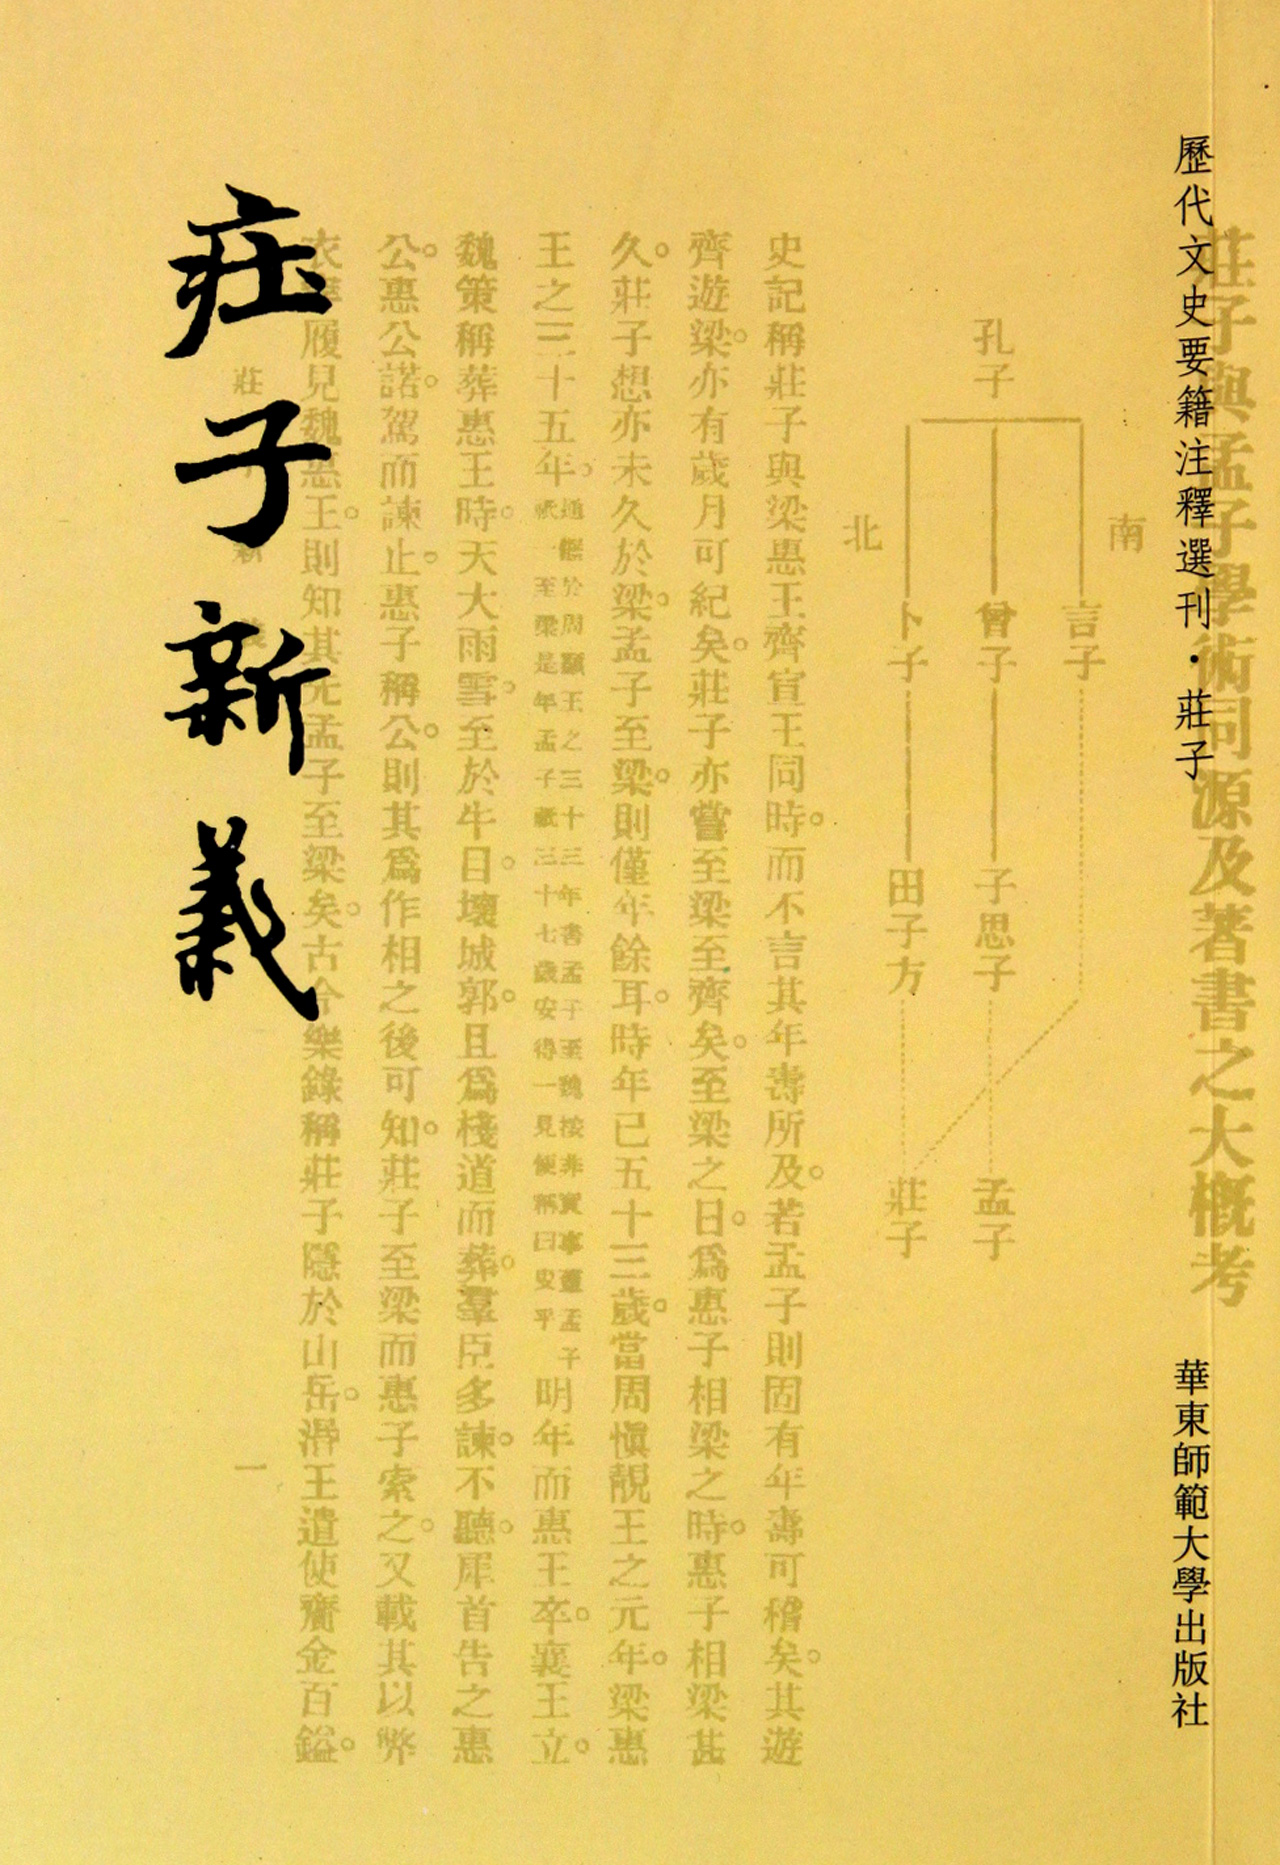 莊子新義
歷代文史要籍注釋選刊·莊子
華東師範大學出版社
莊子與孟子學術同源及著書之大概考
孔子
南
北
言子
曾子
卜子
子思子
田子方
孟子
莊子
史記稱莊子與梁惠王齊宣王同時。而不言其年壽所及。若孟子則固有年壽可稽矣。其遊
齊遊梁。亦有歲月可紀矣。莊子亦嘗至梁至齊矣。至梁之日。爲惠子相梁之時。惠子相梁甚
久。莊子想亦未久於梁。孟子至梁。則僅年餘耳。時年已五十三歲。當周慎靚王之元年。梁惠
王之三十五年。
通鑑於周顯王之三十三年書孟子至魏按非實事蓋孟子
至梁是年孟子纔三十七歲安得一見便稱曰叟乎
明年而惠王卒。襄王立。
魏策稱葬惠王時。天大雨雪。至於牛目。壞城郭。且爲棧道而葬。羣臣多諫。不聽。犀首告之惠
公。惠公諾。駕而諫止。惠子稱公。則其爲作相之後可知。莊子至梁而惠子索之。又載其以弊
履見魏惠王。則知其先孟子至梁矣。古今樂錄稱莊子隱於山岳。湣王遣使齎金百鎰。
莊
新
一